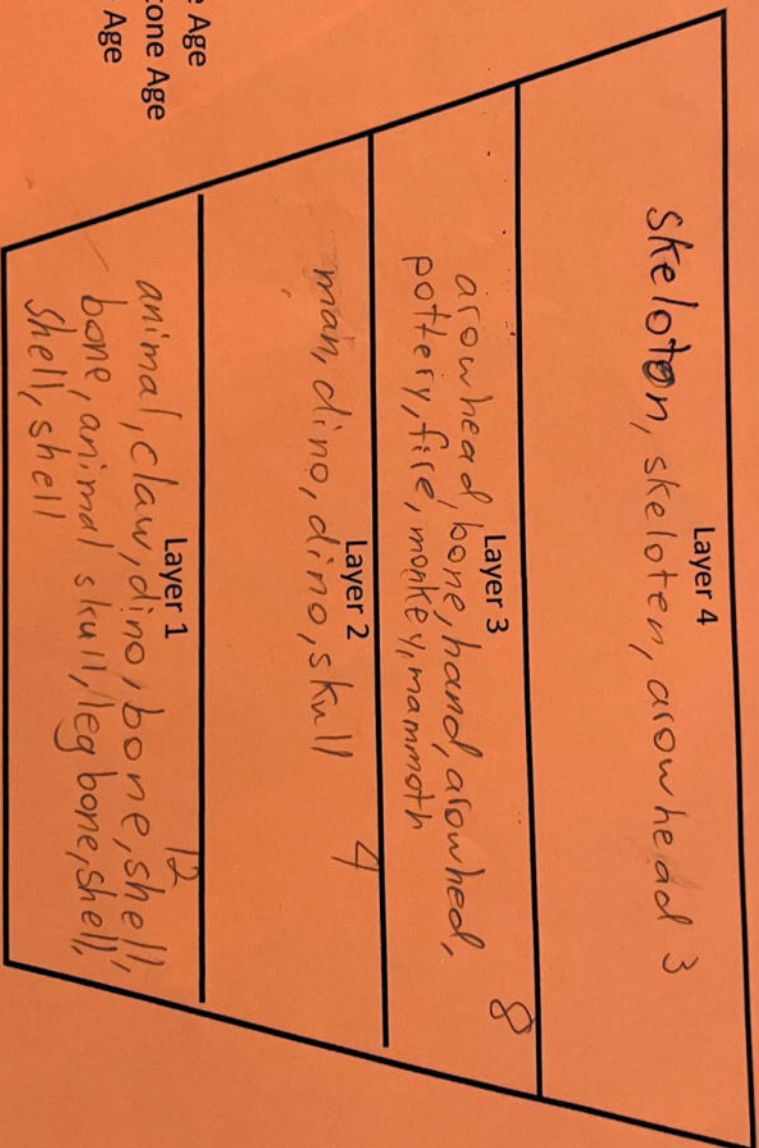 Layer 4
skeloton, skeloten, arowhead 3
Layer 3
arowhead, bone, hand, arowhed,
pottery, fire, monkey, mammoth
8
Layer 2
man, dino, dino, skull
4
Layer 1
12
animal, claw, dino, bone, shell,
bone, animal skull, leg bone, shell,
shell, shell
e Age
tone Age
Age